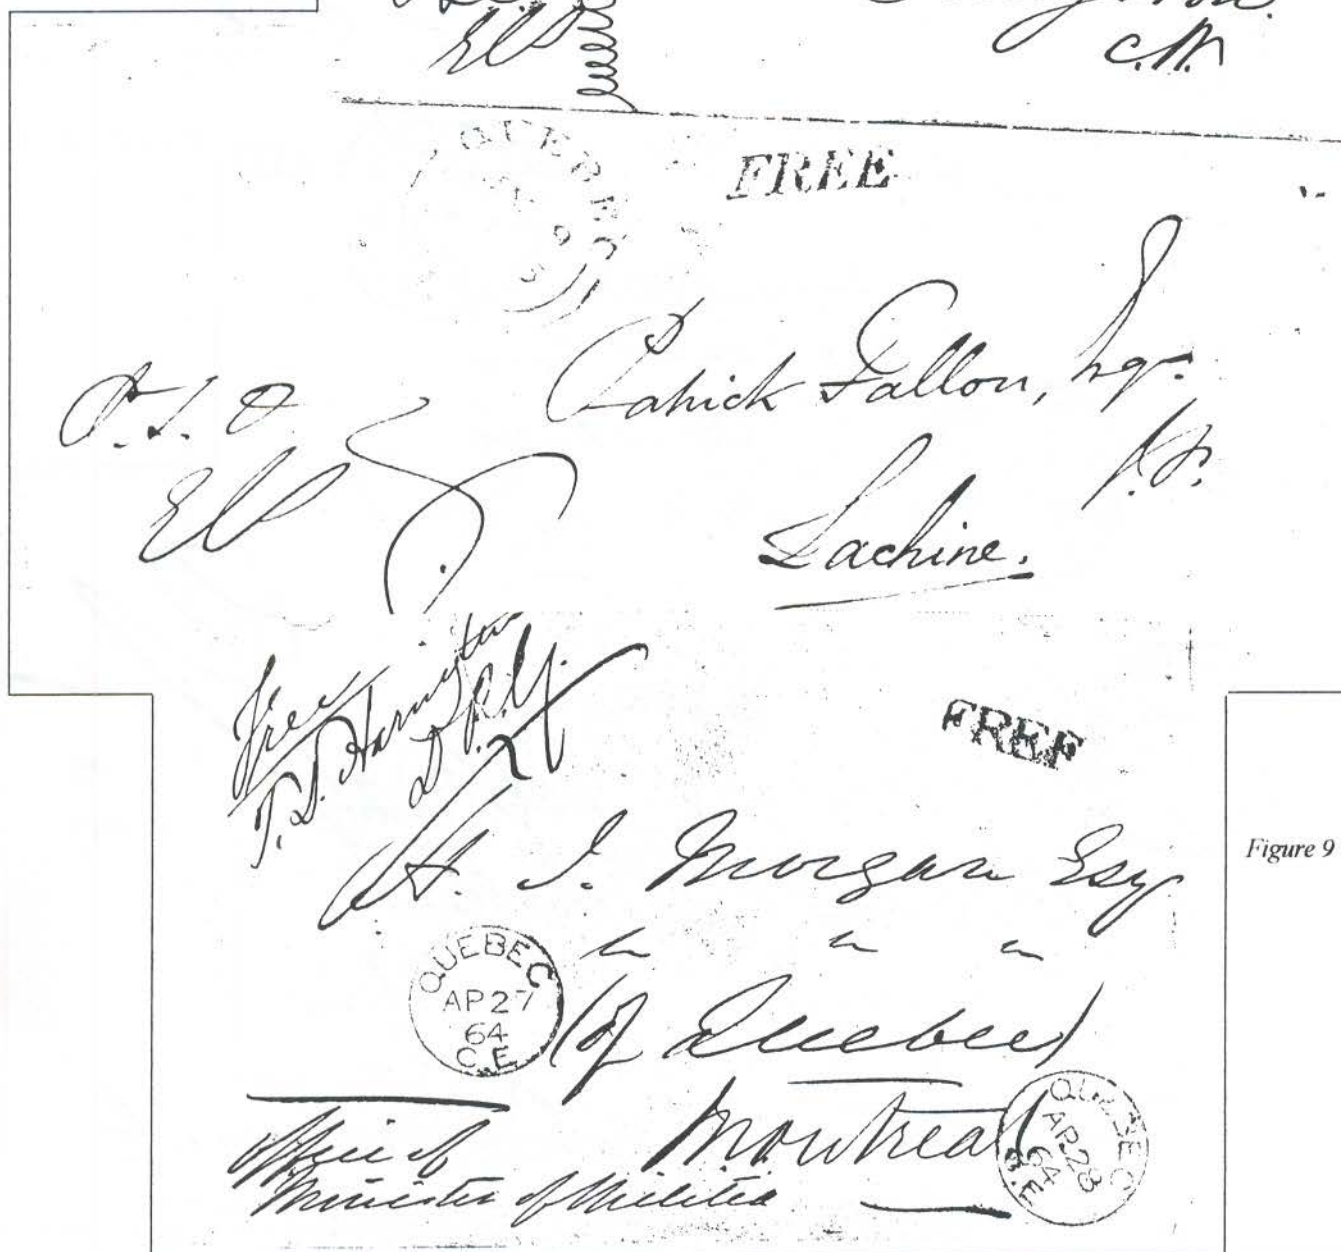 C.W.
QUEBEC
FREE
Patrick Fallon, Esqr.
J.P.
Lachine.
Free
T.D. Harington
D.P.M.G.
FREE
H. J. Morgan Esq
QUEBEC
AP 27
64
C.E.
(of Quebec)
Montreal
QUEBEC
AP 28
64
C.E.
Office of
Minister of Militia
Figure 9